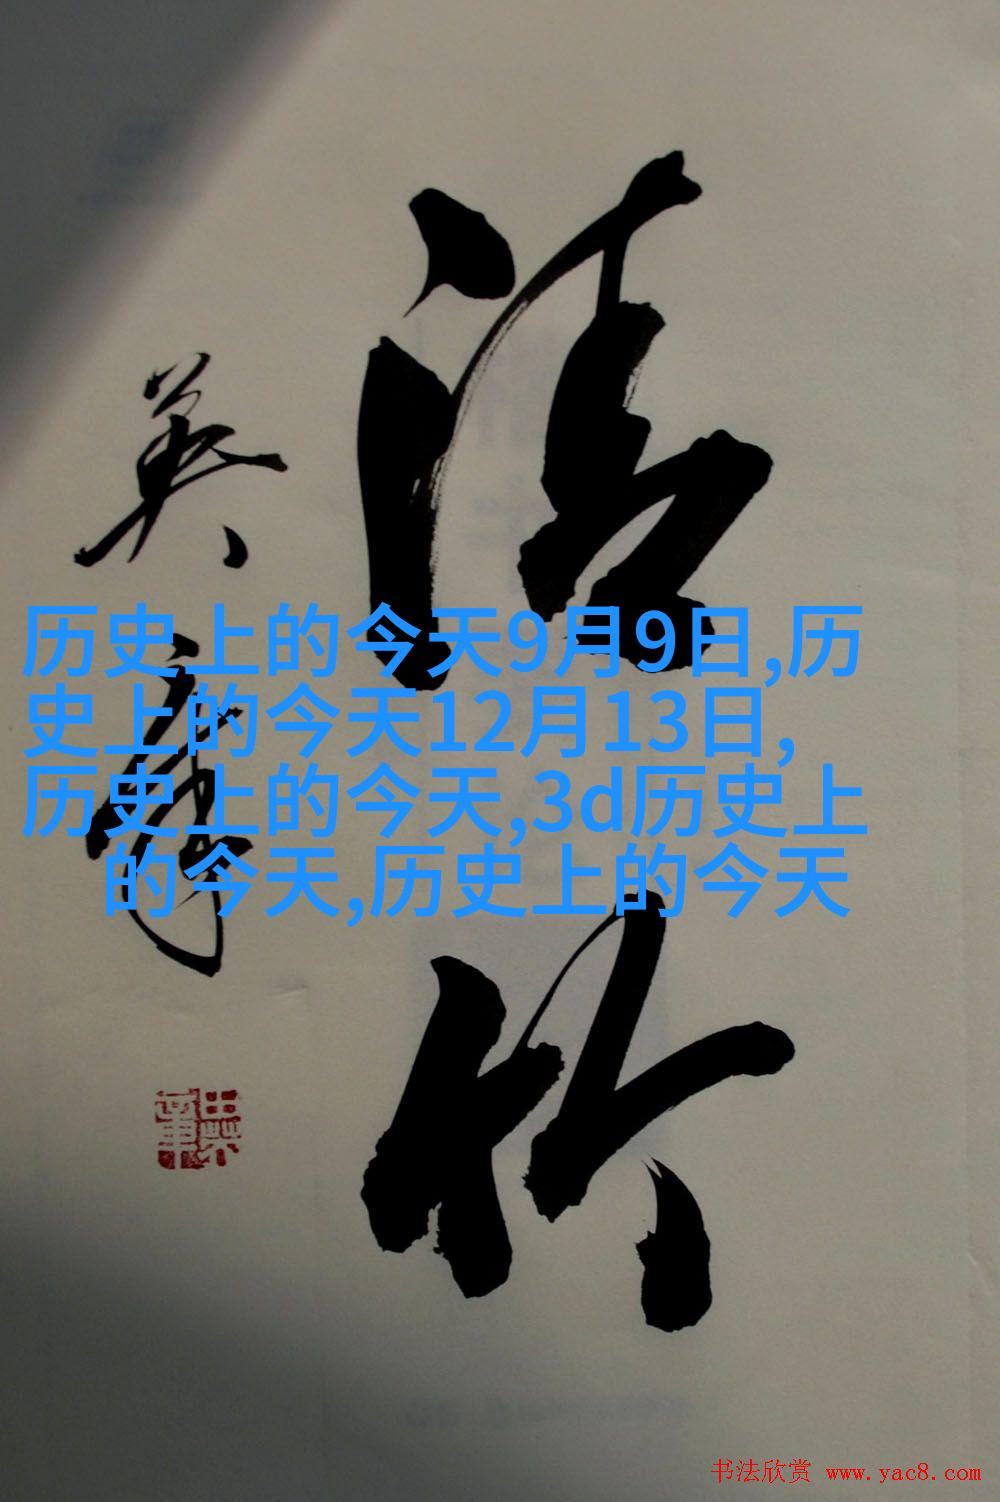 清竹
英章
历史上的今天9月9日,历
史上的今天12月13日,
历史上的今天,3d历史上
的今天,历史上的今天
书法欣赏 www.yac8.com